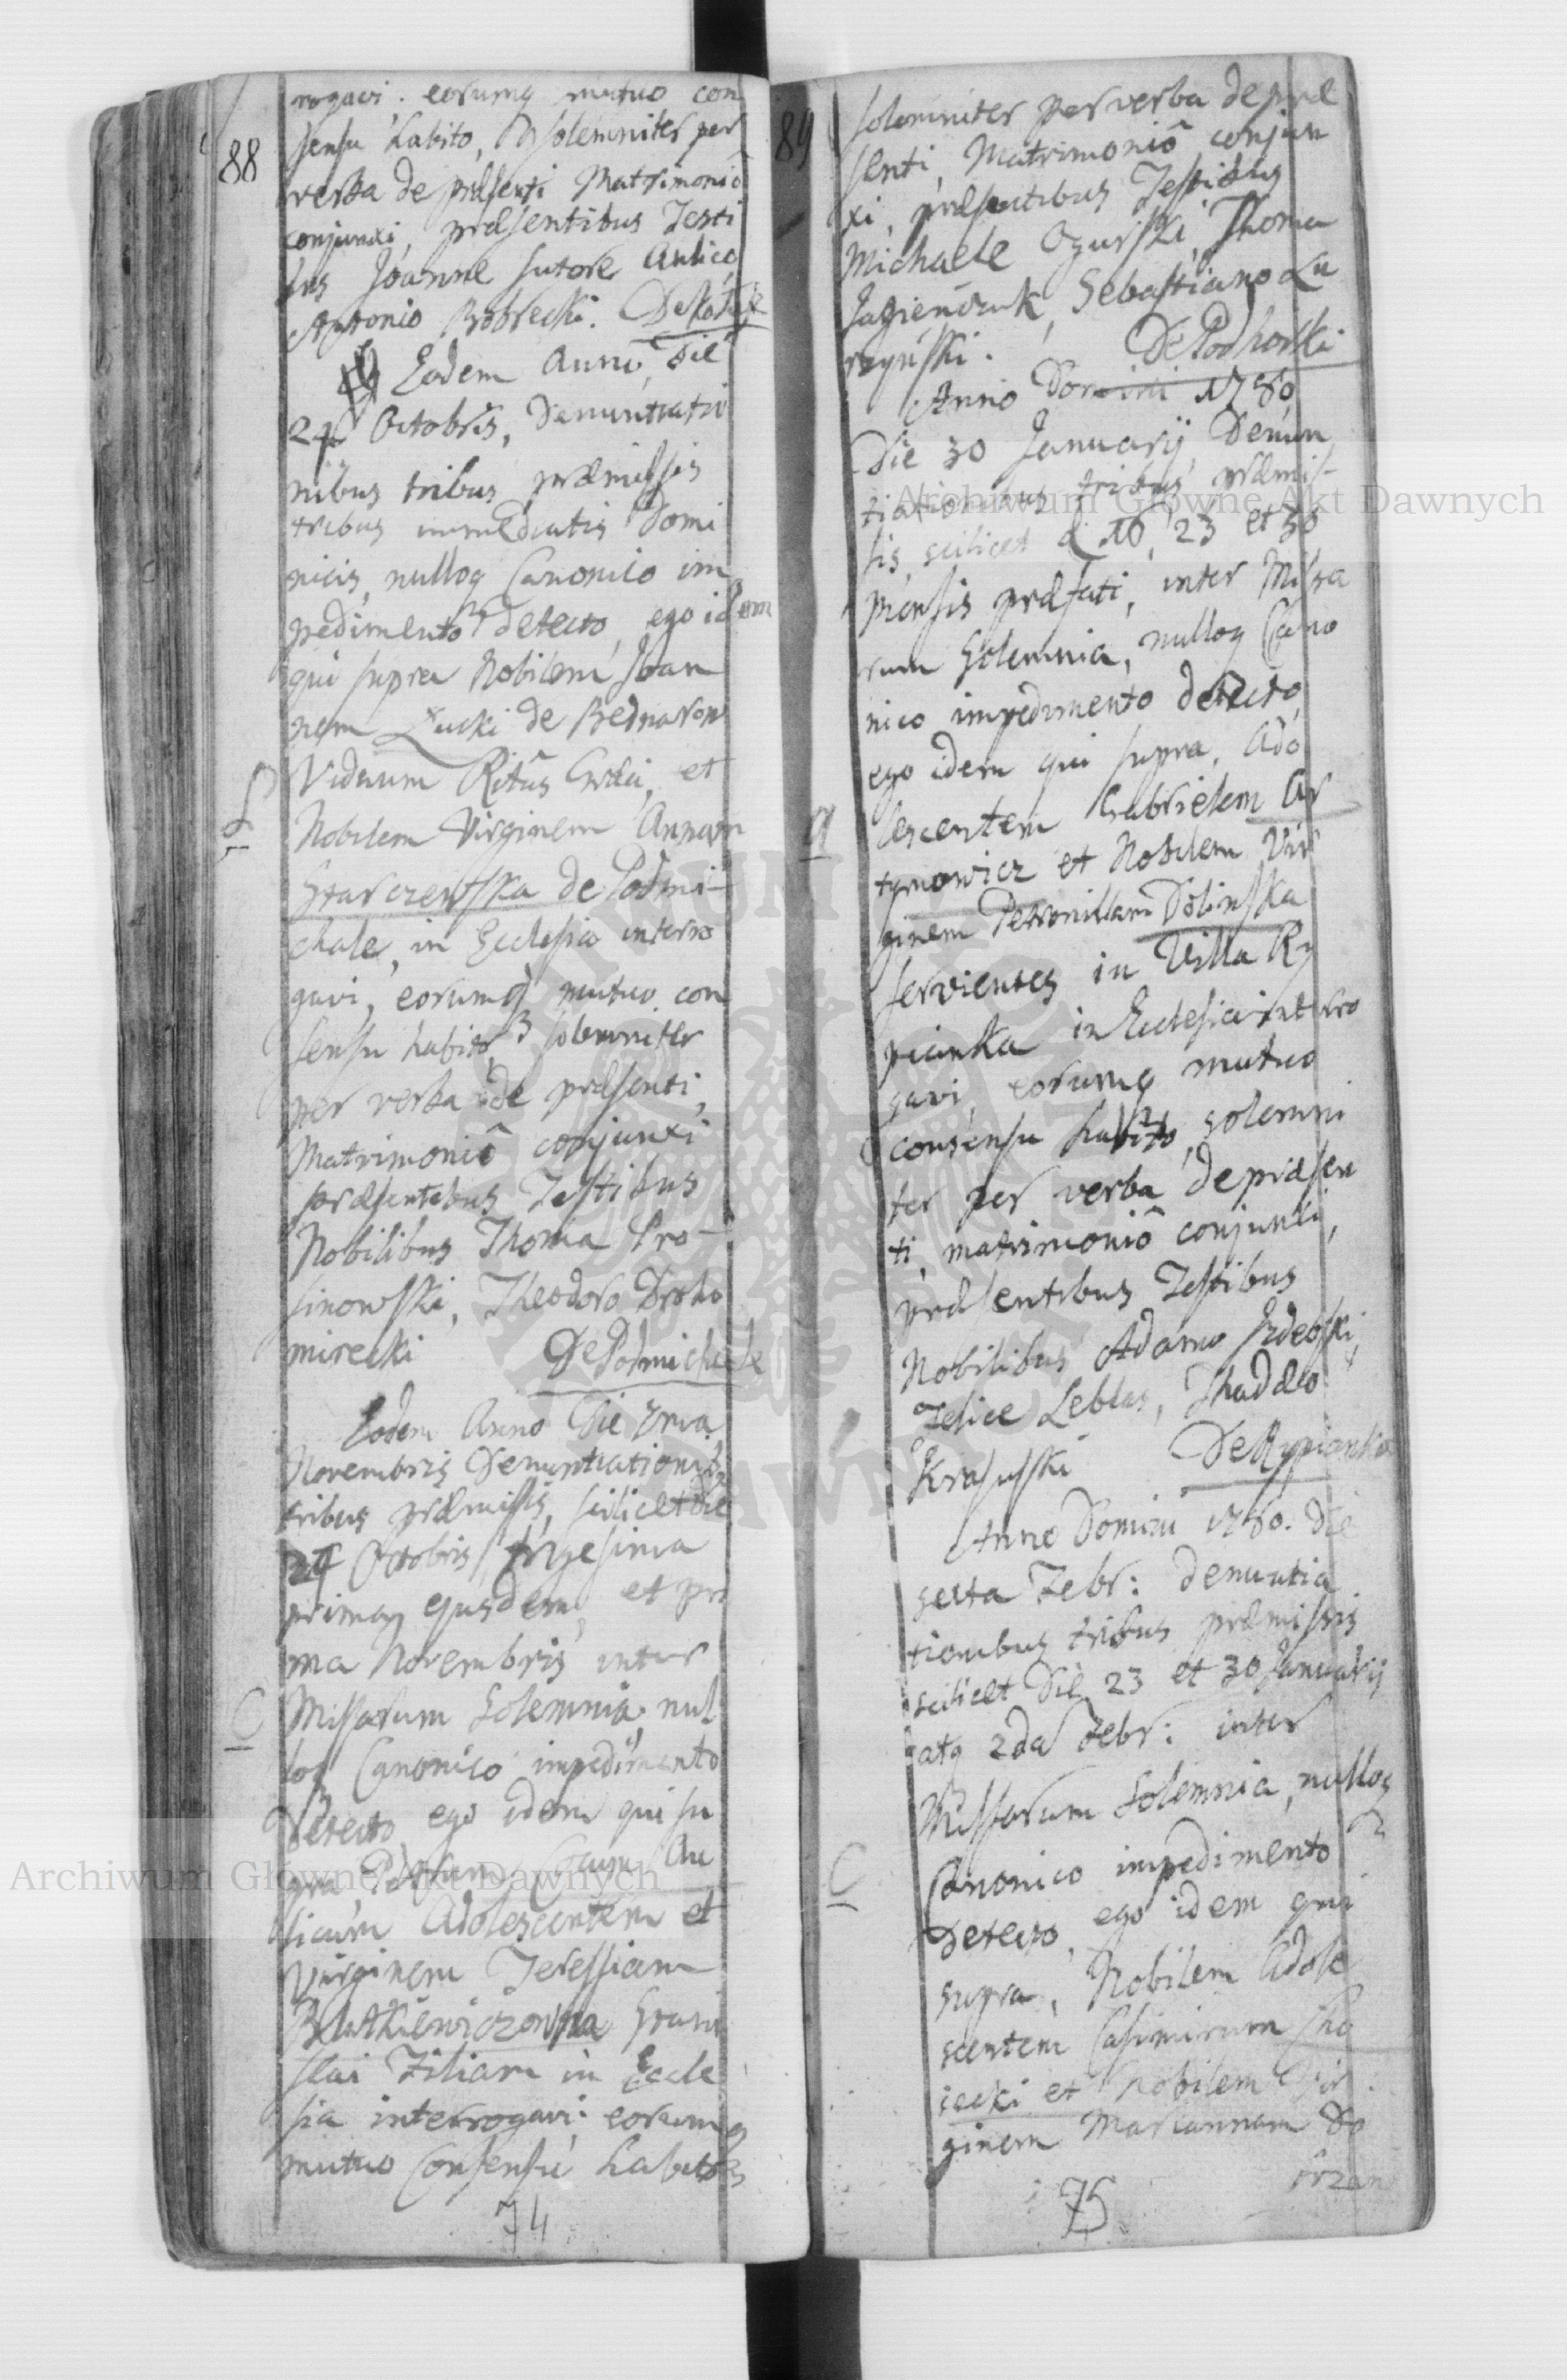 88
rogavi. eorumq mutuo con
sensu habito, solemniter per
verba de præsenti Matrimonio
conjunxi, præsentibus Testi
bus Joanne Sutore Aulico,
Antonio Bobrecki.
Eodem Anno, die
24 Octobris, Denuntiatio
nibus tribus præmissis
tribus immediatis Domi
nicis, nulloq Canonico im
pedimento detecto, ego idem
qui supra Nobilem Joan
nem Łucki de Bednarow
Viduum Ritûs Græci, et
Nobilem Virginem Annam
Starczewska de Podmi-
chale, in Ecclesia interro
gavi, eorumq mutuo con
sensu habito, solemniter
per verba de præsenti,
Matrimoniô conjunxi
præsentibus Testibus
Nobilibus Thoma Pro-
sinowski, Theodoro Droho
mirecki De Podmichale
Eodem Anno Die 7ma
Novembris Denuntiationib
tribus præmissis, scilicet die
24 Octobris, trigesima
primaq ejusdem, et pri
ma Novembris inter
C
Missarum Solemnia, nul
loq Canonico impedimento
detecto, ego idem qui su
pra, Petrum Cocum Au
licum Adolescentem et
Virginem Teressiam
Stanis
slai Filiam in Eccle
sia interrogavi; eorumq
mutuo Consensu habito
74
89
solemniter per verba de præ
senti, Matrimoniô conjun
xi, præsentibus Testibus
Michaele Ogurski, Thoma
Jagienczuk, Sebastiano Lu
rzyński. De Podhorki
Anno Domini 1780
Die 30 Januarij, Denun
tiationibus tribus præmis-
sis, scilicet d 16, 23 et 30
mensis præfati, inter Missa
rum Solemnia, nulloq Cano
nico impedimento detecto,
ego idem qui supra, Ado
a
lescentem Gabrielem Ar
tymowicz et Nobilem Vir
ginem Petronillam Dolinska
servientes in Villa Ry
pianka in Ecclesia interro
gavi, eorumq mutuo
consensu habito, solemni
ter per verba de præsen
ti, matrimoniô conjunxi,
præsentibus Testibus
Nobilibus Adamo
Felice Leblas, Thaddæo
Krasuski De Rypianka
Anno Domini 1780. die
sexta Febr: denuntia
tionibus tribus præmissis
scilicet die 23 et 30 Januarij
atq 2da Febr: inter
Missarum Solemnia, nulloq
C
Canonico impedimento
detecto, ego idem qui
supra, Nobilem Adole
scentem Casimirum Cho
iecki et Nobilem Vir
ginem Mariannam Do
brzan
75
Archiwum Główne Akt Dawnych
Archiwum Główne Akt Dawnych